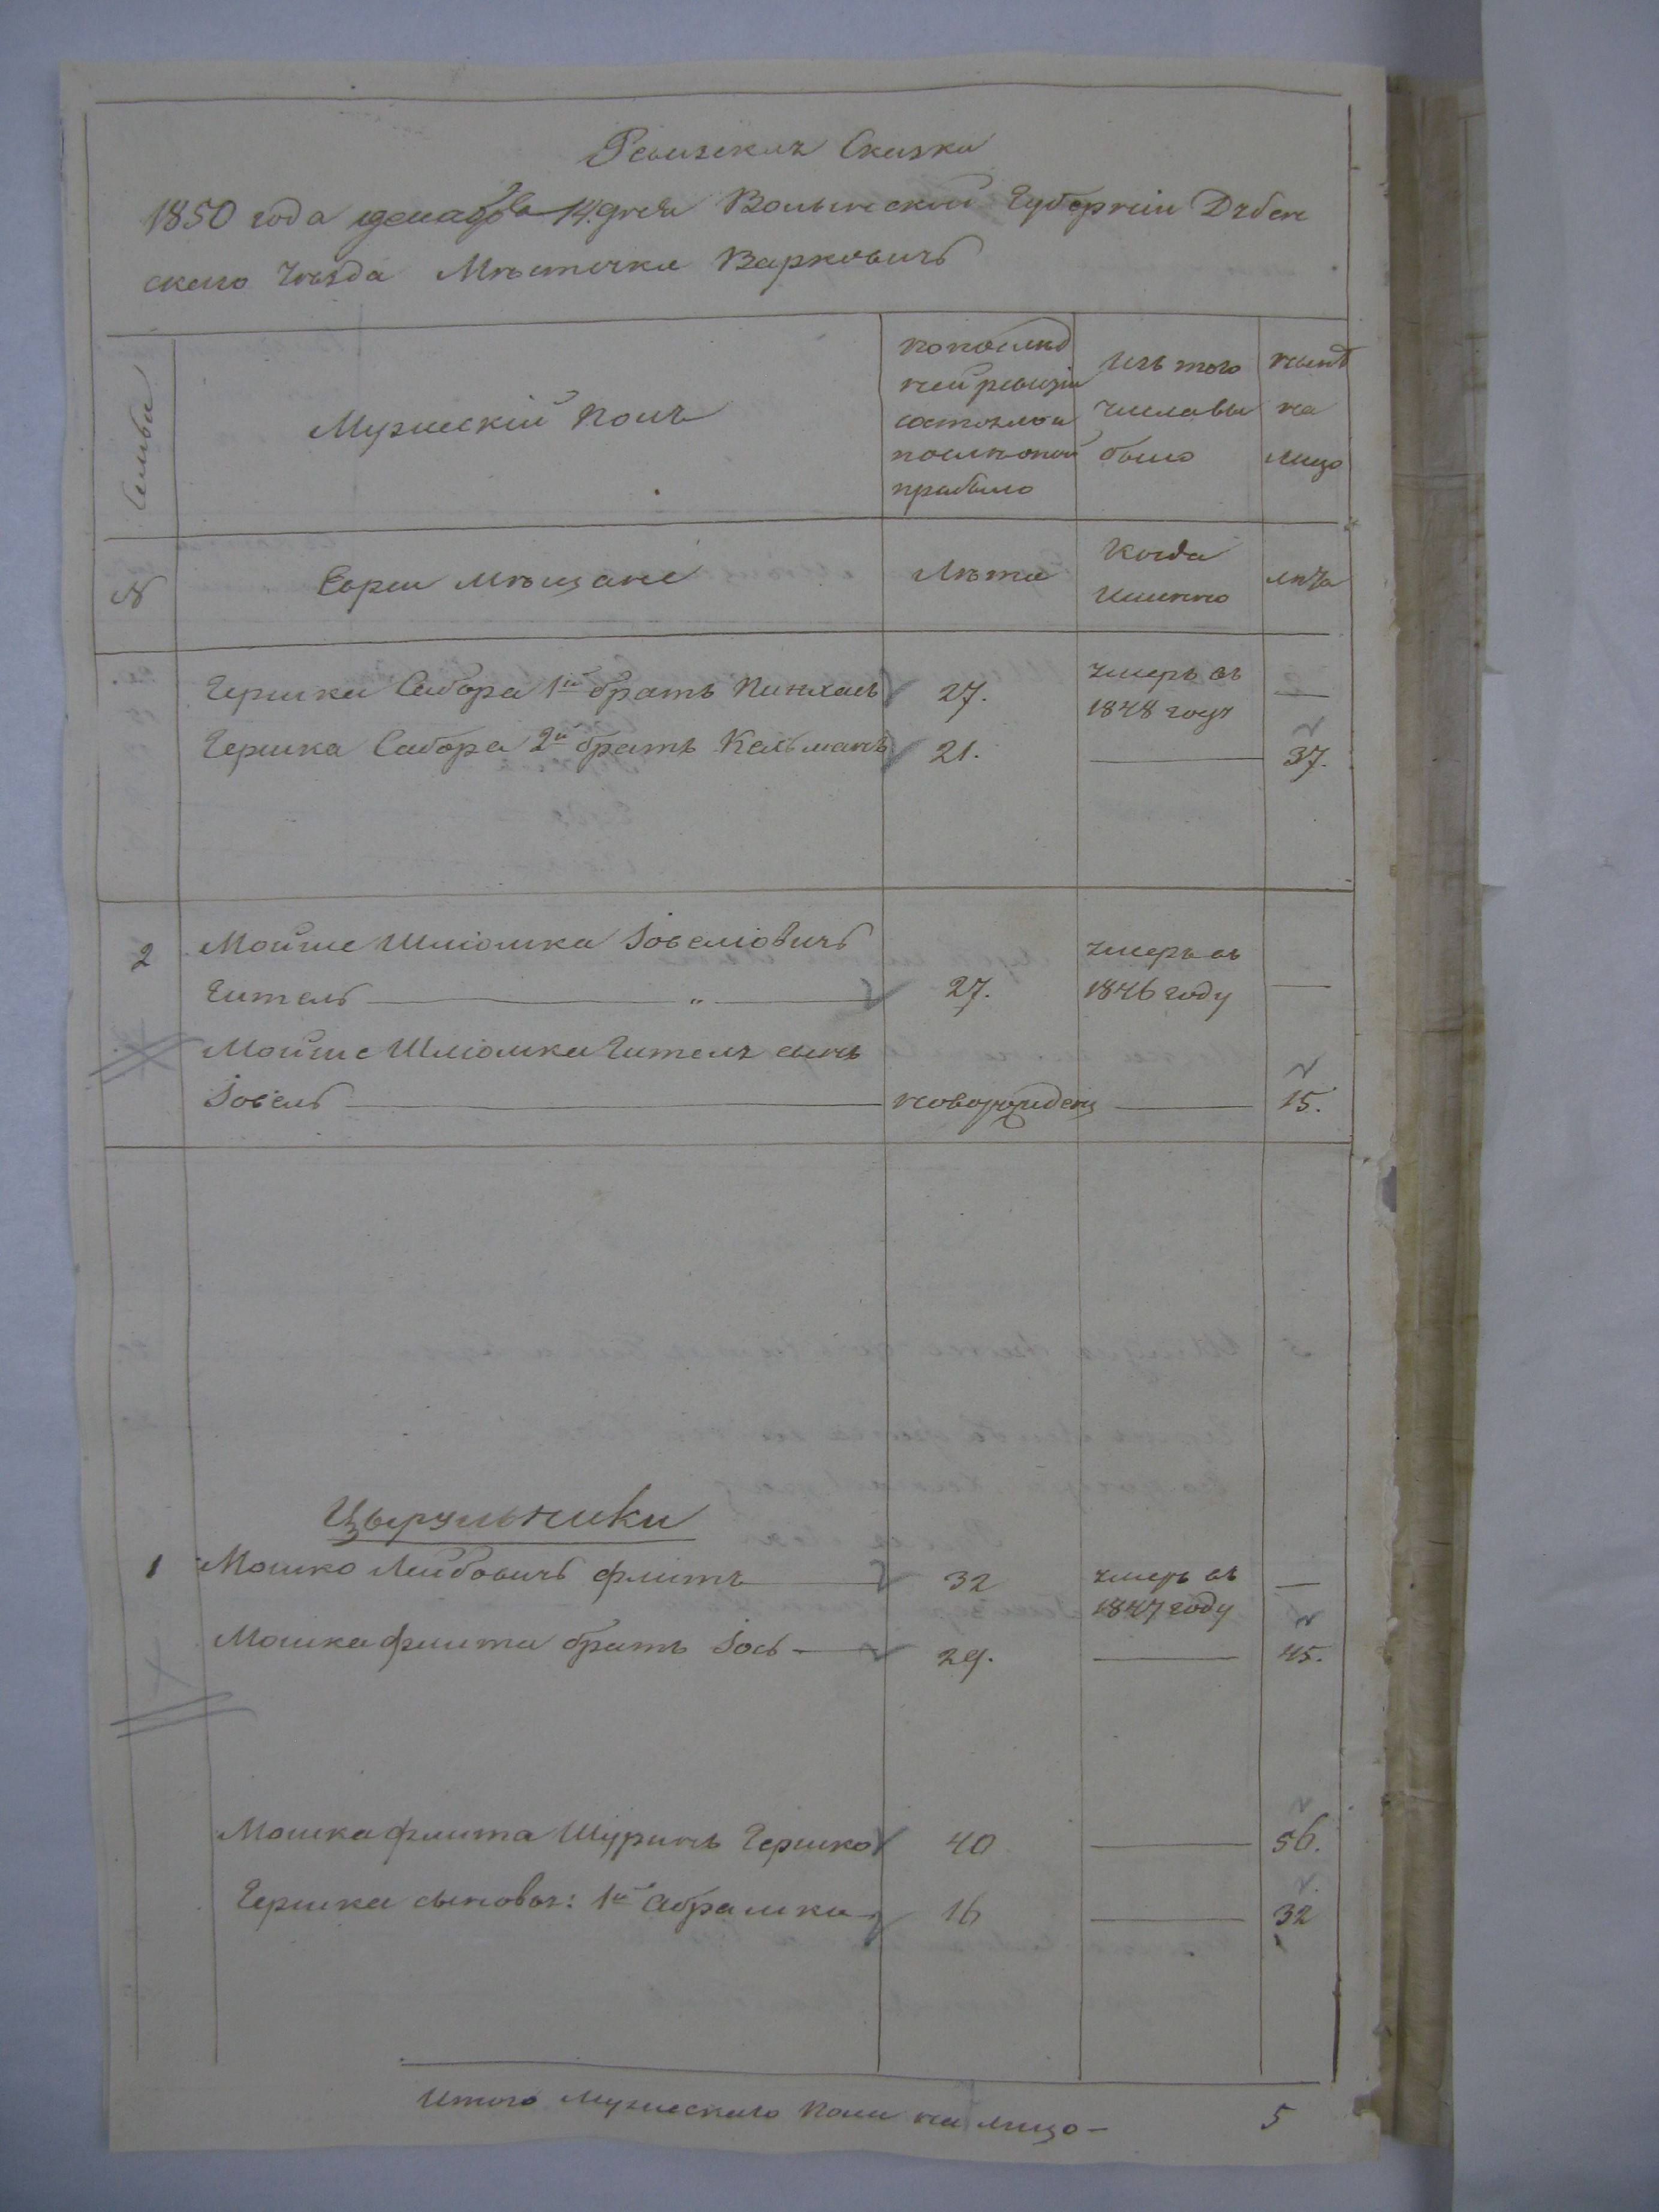 Ревизская Сказка
1850 года декабра 14 дня Волынской Губернии Дубен
скаго Уезда Мѣстечка Варковичъ
Семьи
Мужескій полъ
По послѣд
ней ревизіи
состояло и
послѣ оной
прибыло
Изъ того
числа вы
было
нынѣ
на
лицо
№
Евреи мѣщане
Лѣта
Когда
Именно
лѣта
Гершка Сабора 1й братъ Пинхасъ 27. умеръ въ 1848 году —
Гершка Сабора 2й братъ Кельманъ 21. — 37.
2 Мойше Шлiомка Iовелiовичъ
Гительъ — „ — 27. умеръ въ 1846 году —
Мойше Шлiомка Гителя сынъ
Iовель — новорожденъ — 15.
Цырульники
1 Мошко Лейбовичъ Флитъ — 32 умеръ въ 1847 году —
Мошка Флита братъ Iось — 29. — 45.
Мошка Флита Шуринъ Гершко 40 — 56.
Гершка сыновья: 1й Абрамка 16 — 32
Итого Мужескаго пола на лицо — 5